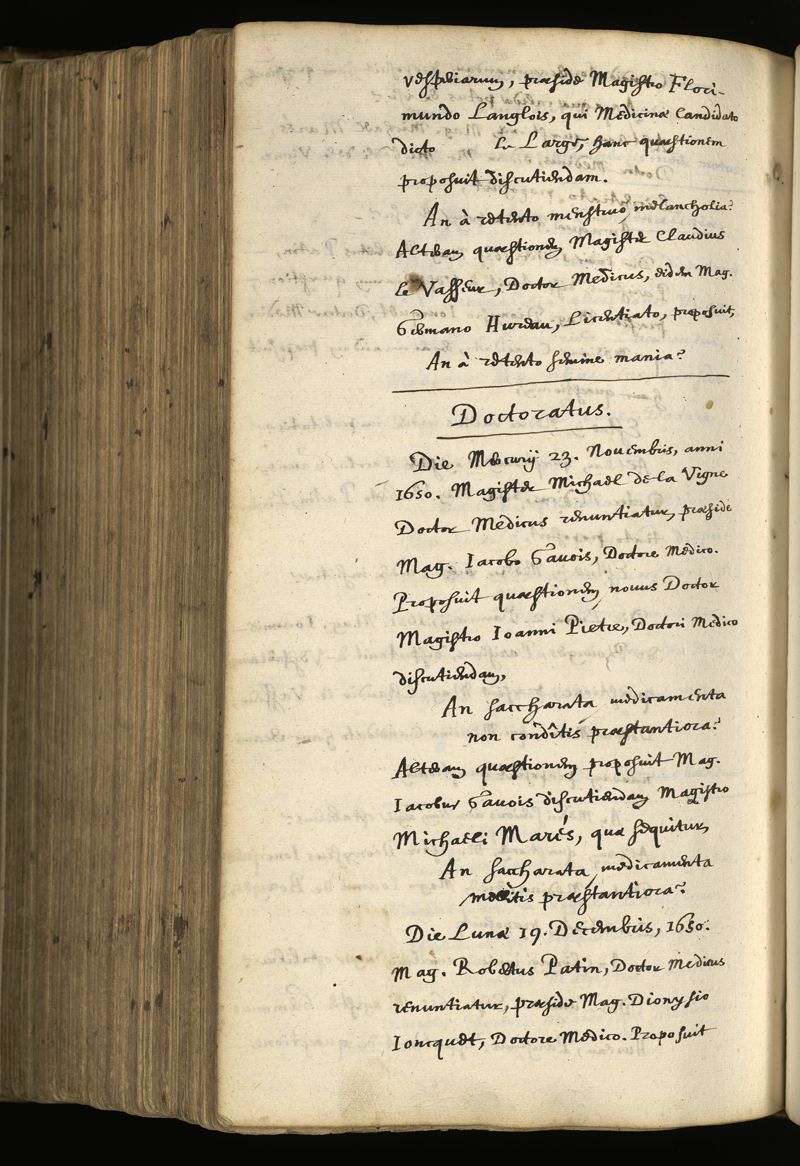 vesperiarum, præside Magistro Flori-
mundo Langlois, qui Medicinæ Candidato
dicto le Large, hanc quæstionem
proposuit discutiendam.
An à retento menstruo, melancholia?
Alteram quæstionem Magister Claudius
le Vasseur, Doctor Medicus, eidem Mag.
Germano Hureau, Licentiato, proposuit,
An à retento semine mania?
Doctoratus.
Die Mercurij 23. Novembris, anni
1650. Magister Michael de la Vigne
Doctor Medicus renuntiatur, præside
Mag. Iacobo Gavois, Doctore Medico.
Proposuit quæstionem novus Doctor
Magistro Ioanni Pietre, Doctori Medico
discutiendam,
An saccharata medicamenta
non conditis præstantiora?
Alteram quæstionem proposuit Mag.
Iacobus Gavois discutiendam Magistro
Michaeli Marés, quæ sequitur,
An saccharata medicamenta
mellitis præstantiora?
Die Lunæ 19. Decembris, 1650.
Mag. Robertus Patin, Doctor Medicus
renuntiatur, præside Mag. Dionysio
Ioncquet, Doctore Medico. Proposuit